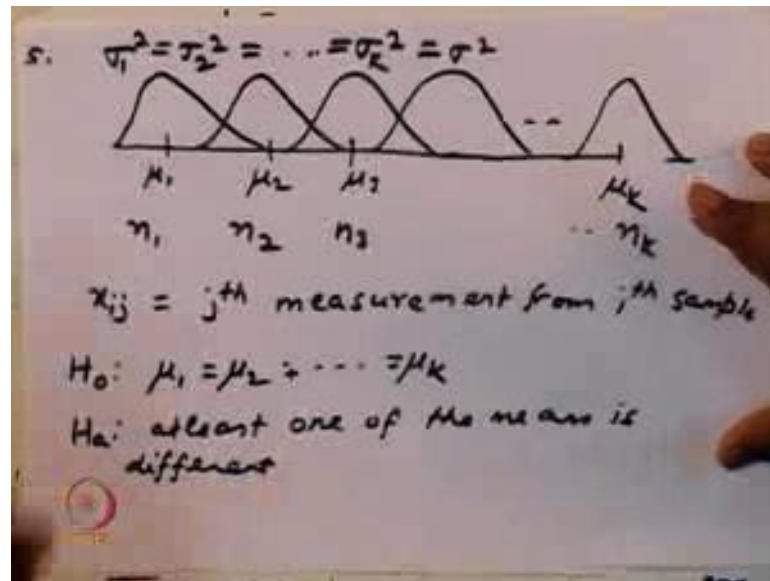 5. σ₁² = σ₂² = ... = σₖ² = σ²
--
μ₁ μ₂ μ₃ μₖ
n₁ n₂ n₃ .. nₖ
xᵢⱼ = jᵗʰ measurement from iᵗʰ sample
H₀: μ₁ = μ₂ = .... = μₖ
Hₐ: atleast one of the means is
different